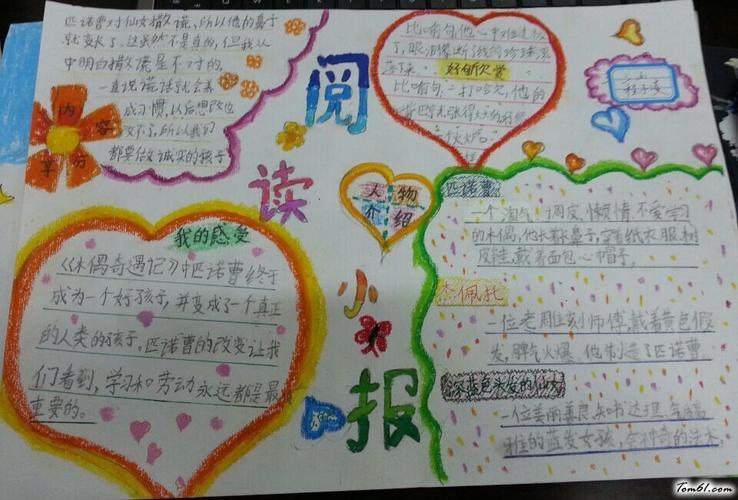 匹诺曹对仙女撒谎,所以他的鼻子
就变长了。这虽然不是真的,但我从
中明白撒谎是不对的。
一直说谎话就会养
成习惯,以后想改也
改不了,所以我们
都要做诚实的孩子
内
容
部分
阅
读
小
报
比喻句:他心中难过极
了,眼泪像断线的珍珠
落下来。
好句欣赏
比喻句:打哈欠,他的
人物
介绍
我的感受
《木偶奇遇记》中匹诺曹终于
成为一个好孩子,并变成了一个真正
的人类的孩子。匹诺曹的改变让我
们看到,学习和劳动永远都是最
重要的。
匹诺曹
一个淘气、调皮、懒惰、不爱学习
的木偶,他长着长鼻子,穿着纸衣服,树
皮鞋,戴着面包心帽子。
杰佩托
一位老周位刻师傅,戴着黄色假
发,脾气火爆。他制造了匹诺曹
深蓝色头发的仙女
一位美丽善良、知书达理、气质高
雅的蓝发女孩,会神奇的法术。
Tom61.com